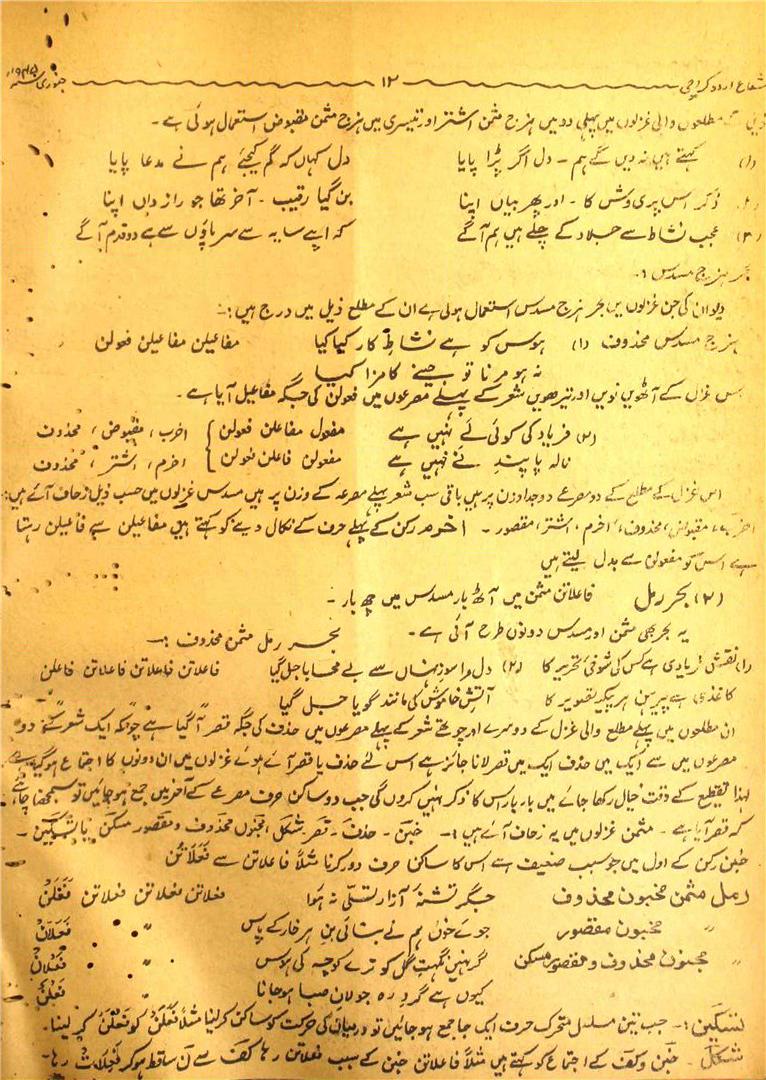 شعاع اردو کراچی ۱۲ جنوری
مطلعوں والی غزلوں میں پہلی دو میں ہزج مثمن اشتر اور تیسری میں ہزج مثمن مقبوض استعمال ہوئی ہے۔
(۱) کہتے ہیں نہ دیں گے ہم۔ دل اگر پڑا پایا دل کہاں کہ گم کیجئے ہم نے مدعا پایا
ذکر اس پری وش کا۔ اور پھر بیاں اپنا بن گیا رقیب۔ آخر تھا جو رازداں اپنا
(۳) عجب نشاط سے جلاد کے چلے ہیں ہم آگے کہ اپنے سایہ سے سر پاؤں سے ہے دو قدم آگے
ہزج مسدس :۔
دیوان کی جن غزلوں میں بحر ہزج مسدس استعمال ہوئی ہے ان کے مطلع ذیل میں درج ہیں :۔
ہزج مسدس محذوف (۱) ہوس کو ہے نشاطِ کار کیا کیا مفاعیلن مفاعیلن فعولن
نہ ہو مرنا تو جینے کا مزا کیا
اس غزل کے آٹھویں نویں اور تیرھویں شعر کے پہلے مصرعوں میں فعولن کی جگہ مفاعیل آیا ہے۔
(۲) فریاد کی کوئی لے نہیں ہے مفعول مفاعلن فعولن اخرب، مقبوض، محذوف
نالہ پابندِ نے نہیں ہے مفعولن فاعلن فعولن اخرم، اشتر، محذوف
اس غزل کے مطلع کے دو مصرعے دو جدا وزن پر ہیں باقی سب شعر پہلے مصرعہ کے وزن پر ہیں مسدس غزلوں میں حسب ذیل زحاف آئے ہیں:
مقبوض، محذوف، اخرم، اشتر، مقصور۔ اخرم رکن کے پہلے حرف کے نکال دینے کو کہتے ہیں مفاعیلن سے فاعیلن رہتا
ہے اس کو مفعولن سے بدل لیتے ہیں
(۲) بحر رمل فاعلاتن مثمن میں آٹھ بار مسدس میں چھ بار۔
یہ بحر بھی مثمن اور مسدس دونوں طرح آئی ہے۔ بحر رمل مثمن محذوف :۔
(۱) نقش فریادی ہے کس کی شوخیٔ تحریر کا (۲) دل مرا سوزِ نہاں سے بے محابا جل گیا فاعلاتن فاعلاتن فاعلاتن فاعلن
کاغذی ہے پیرہن ہر پیکرِ تصویر کا آتشِ خاموش کی مانند گویا جل گیا " " " "
ان مطلعوں میں پہلے مطلع والی غزل کے دوسرے اور چوتھے شعر کے پہلے مصرعوں میں حذف کی جگہ قصر آگیا ہے چونکہ ایک شعر کے دو
مصرعوں میں سے ایک میں حذف ایک میں قصر لانا جائز ہے اس لئے حذف یا قصر آئے ہوئے غزلوں میں ان دونوں کا اجتماع ہوگیا ہے
لہٰذا تقطیع کے وقت خیال رکھا جائے میں بار بار اس کا ذکر نہیں کروں گی جب دو ساکن حرف مصرعے کے آخر میں جمع ہو جائیں تو سمجھنا چاہئے
کہ قصر آیا ہے۔ مثمن غزلوں میں یہ زحاف آئے ہیں :۔ خبن۔ حذف۔ قصر۔ شکل، مجنون محذوف و مقصور مسکن یا تسکین۔
خبن رکن کے اول میں جو سبب خفیف ہے اس کا ساکن حرف دور کرنا مثلاً فاعلاتن سے فَعَلاتُن
رمل مثمن مخبون محذوف جگر تشنۂ آزار تسلی نہ ہوا فعلاتن فعلاتن فعلاتن فَعَلُن
" مخبون مقصور جوئے خوں ہم نے بہائی بنِ ہر خار کے پاس " " فَعَلانْ
" مجنون محذوف و مقصور مسکن گر نہیں نکہتِ گل کو ترے کوچہ کی ہوس " " فَعْلانْ
کیوں ہے گردِ رہِ جولانِ صبا ہو جانا " فَعْلُنْ
تسکین :۔ جب تین مسلسل متحرک حرف ایک جا جمع ہو جائیں تو درمیان کی حرکت کو ساکن کر لینا مثلاً فَعَلُنْ کو فَعْلُنْ کر لینا۔
شکل۔ خبن و کف کے اجتماع کو کہتے ہیں مثلاً فاعلاتن خبن کے سبب فعلاتن رہا کف سے ن ساقط ہوکر فَعِلاتُ رہا۔